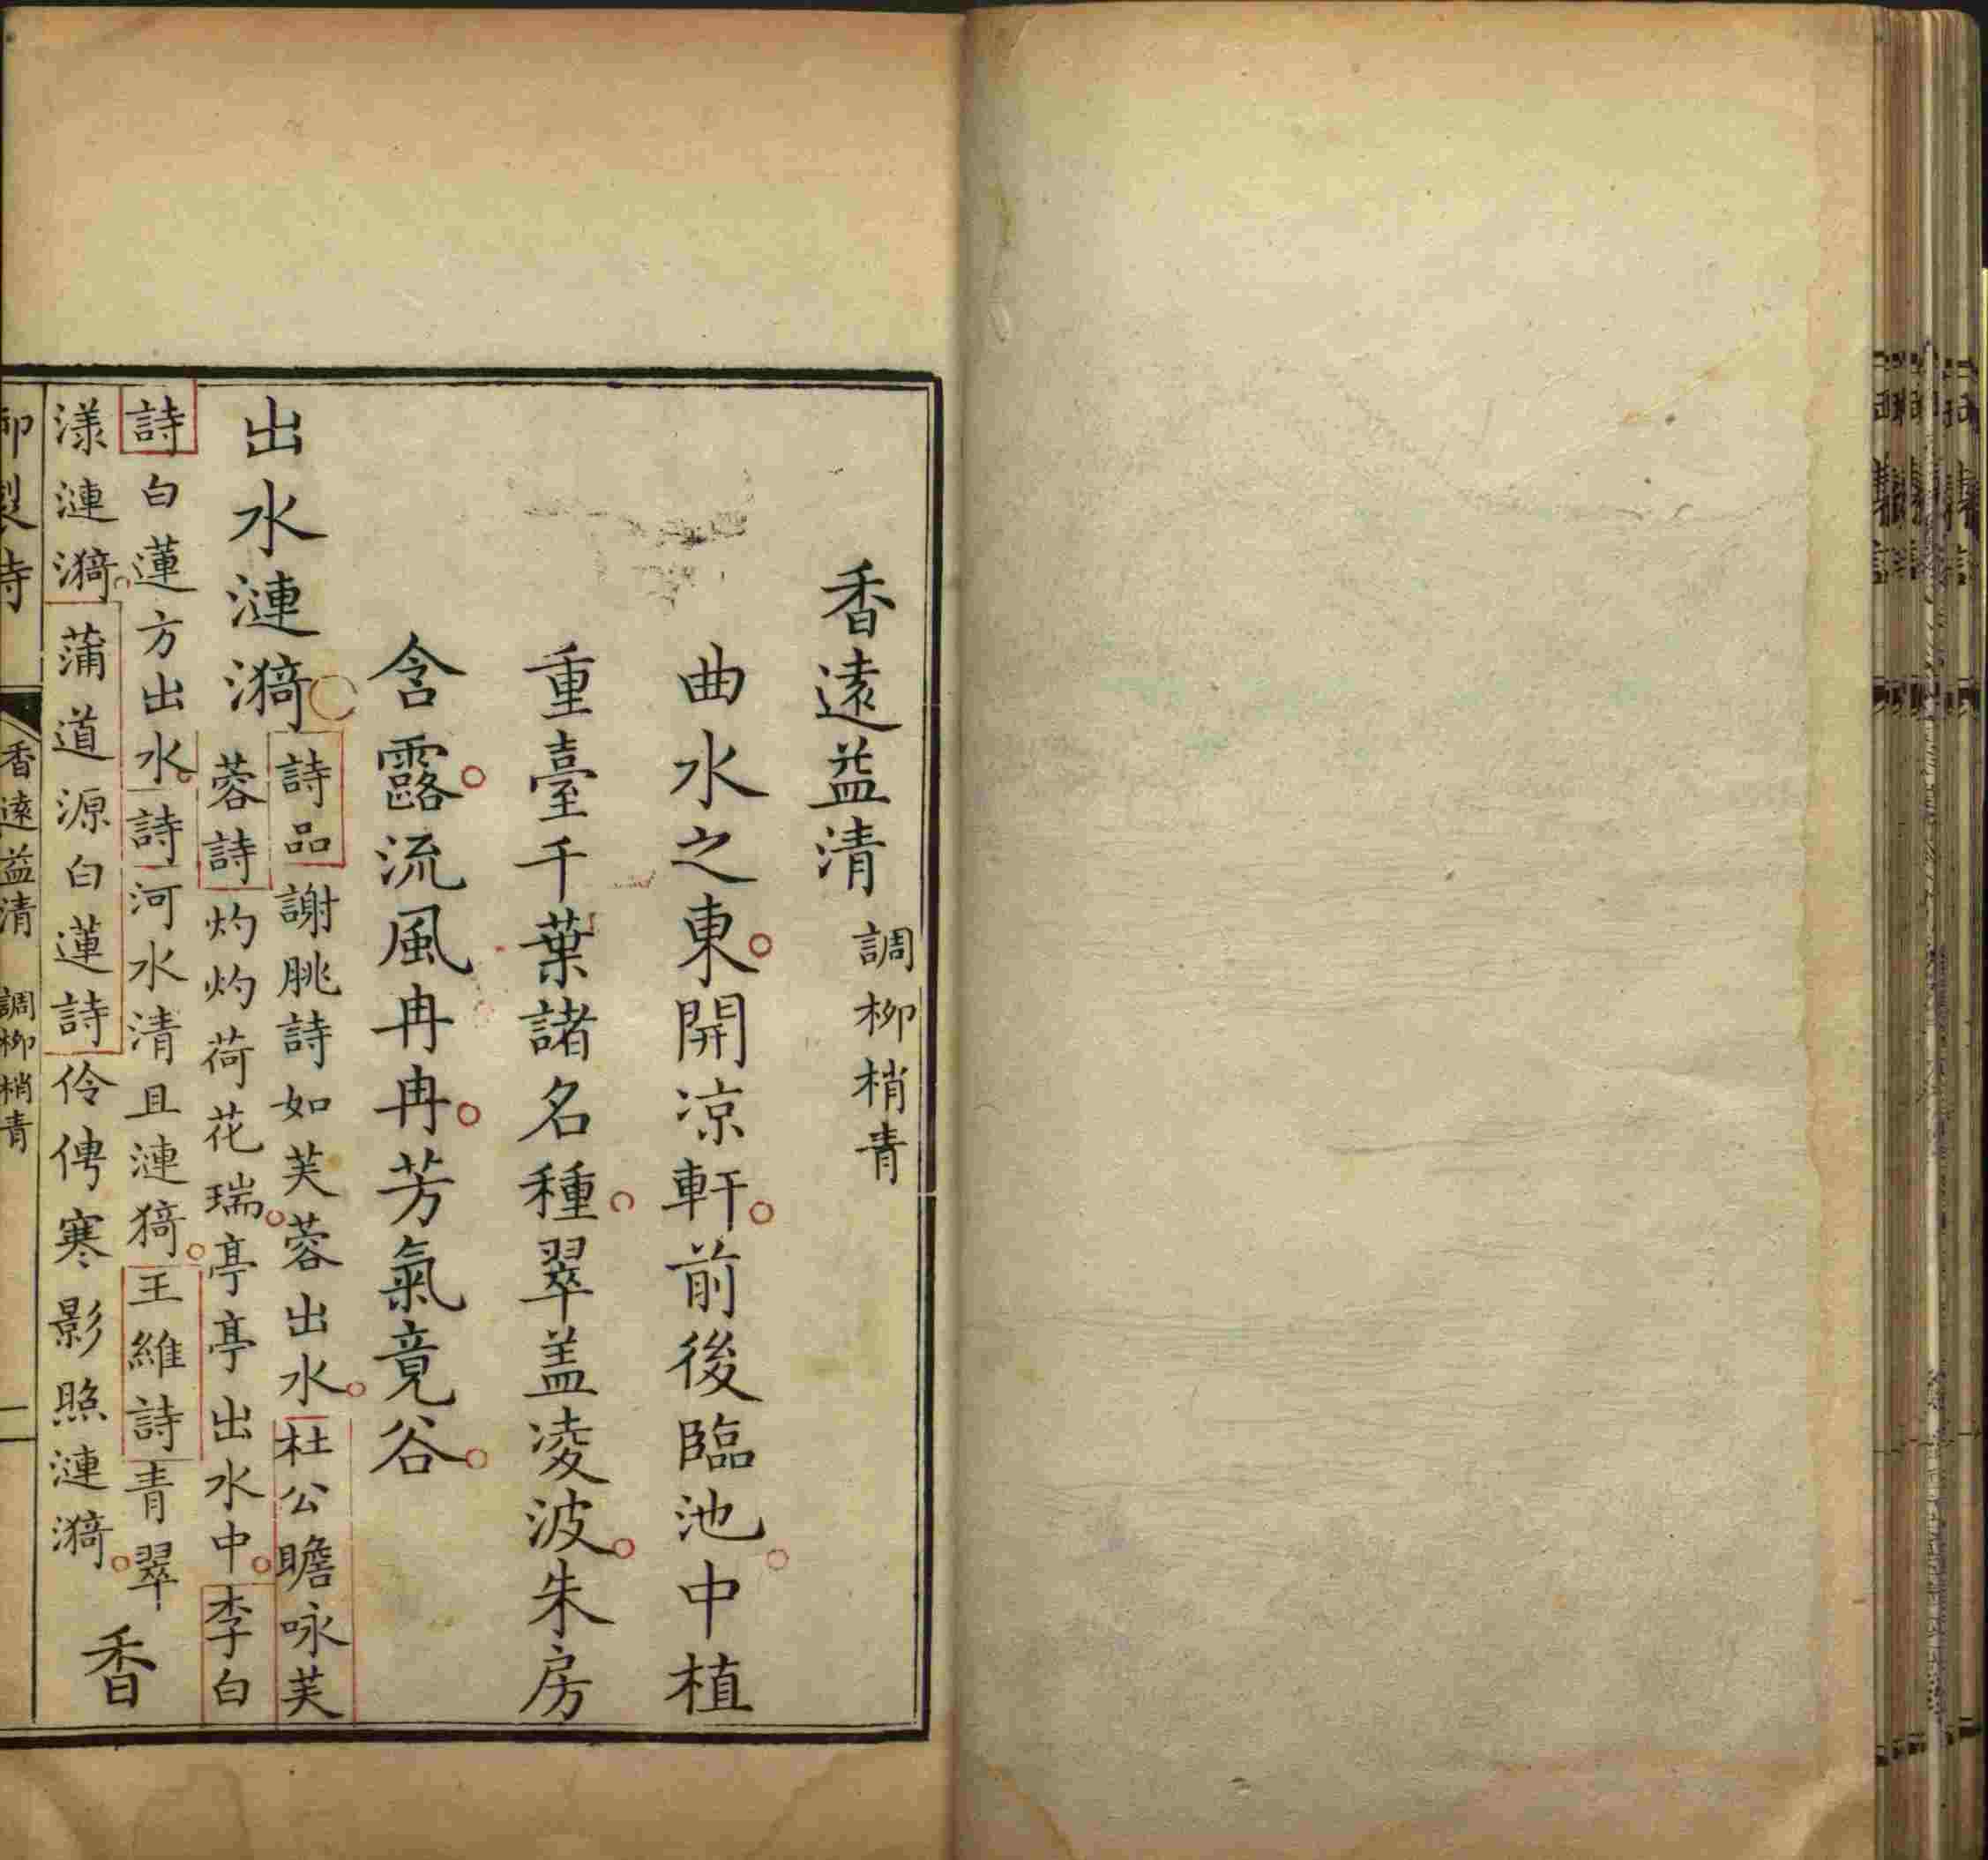 香遠益清 調柳梢青
曲水之東開涼軒前後臨池中植
重臺千葉諸名種翠盖凌波朱房
含露流風冉冉芳氣竟谷
出水漣漪
詩品謝朓詩如芙蓉出水杜公瞻咏芙
蓉詩灼灼荷花瑞亭亭出水中李白
詩白蓮方出水詩河水清且漣猗王維詩青翠
漾漣漪蒲道源白蓮詩伶俜寒影照漣漪
香
御製詩 香遠益清 調柳梢青